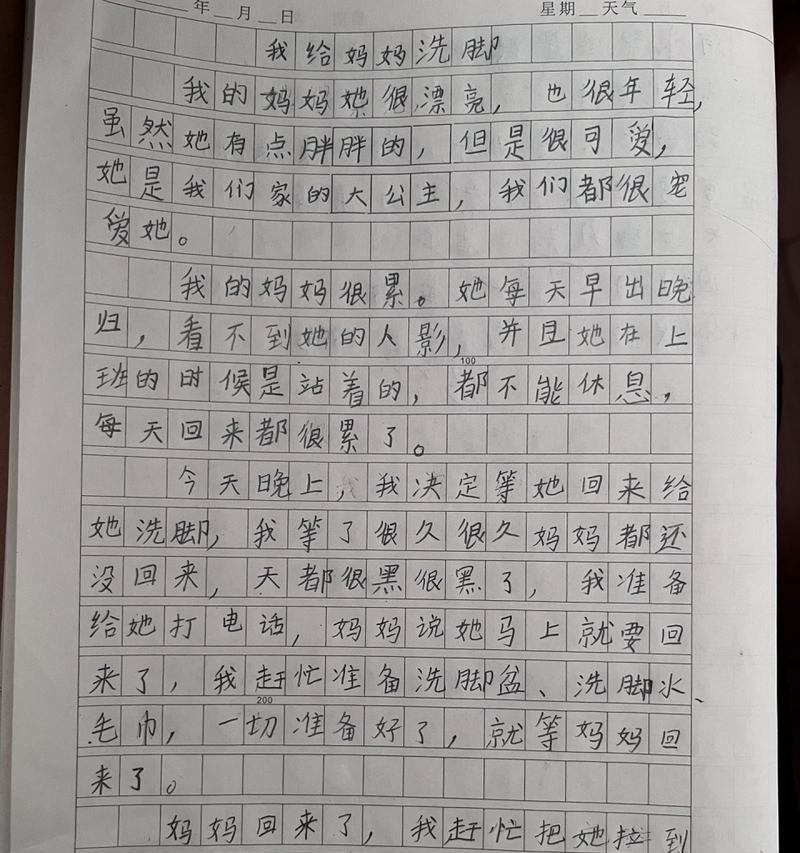 年 月 日 星期 天气
我给妈妈洗脚
我的妈妈她很漂亮，也很年轻，
虽然她有点胖胖的，但是很可爱，
她是我们家的大公主，我们都很宠
爱她。
我的妈妈很累。她每天早出晚
归，看不到她的人影，并且她在上
100
班的时候是站着的，都不能休息，
每天回来都很累了。
今天晚上，我决定等她回来给
她洗脚，我等了很久很久妈妈都还
没回来，天都很黑很黑了，我准备
给她打电话，妈妈说她马上就要回
来了，我赶忙准备洗脚盆、洗脚水、
200
毛巾，一切准备好了，就等妈妈回
来了。
妈妈回来了，我赶忙把她拉到